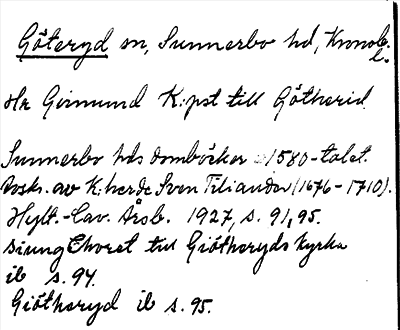 Göteryd sn, Sunnerbo hd, Kronob. l.
Hr Gudmund K:pst till Götherid.
Sunnerbo hds domböcker 1580-talet.
Avskr. av K:herde Sven Tiliander (1676-1710).
Hylt.-Cav. Årsb. 1927, s. 91, 95.
Siung Choret till Giötheryds Kyrka
ib s. 94.
Giötheryd ib s. 95.